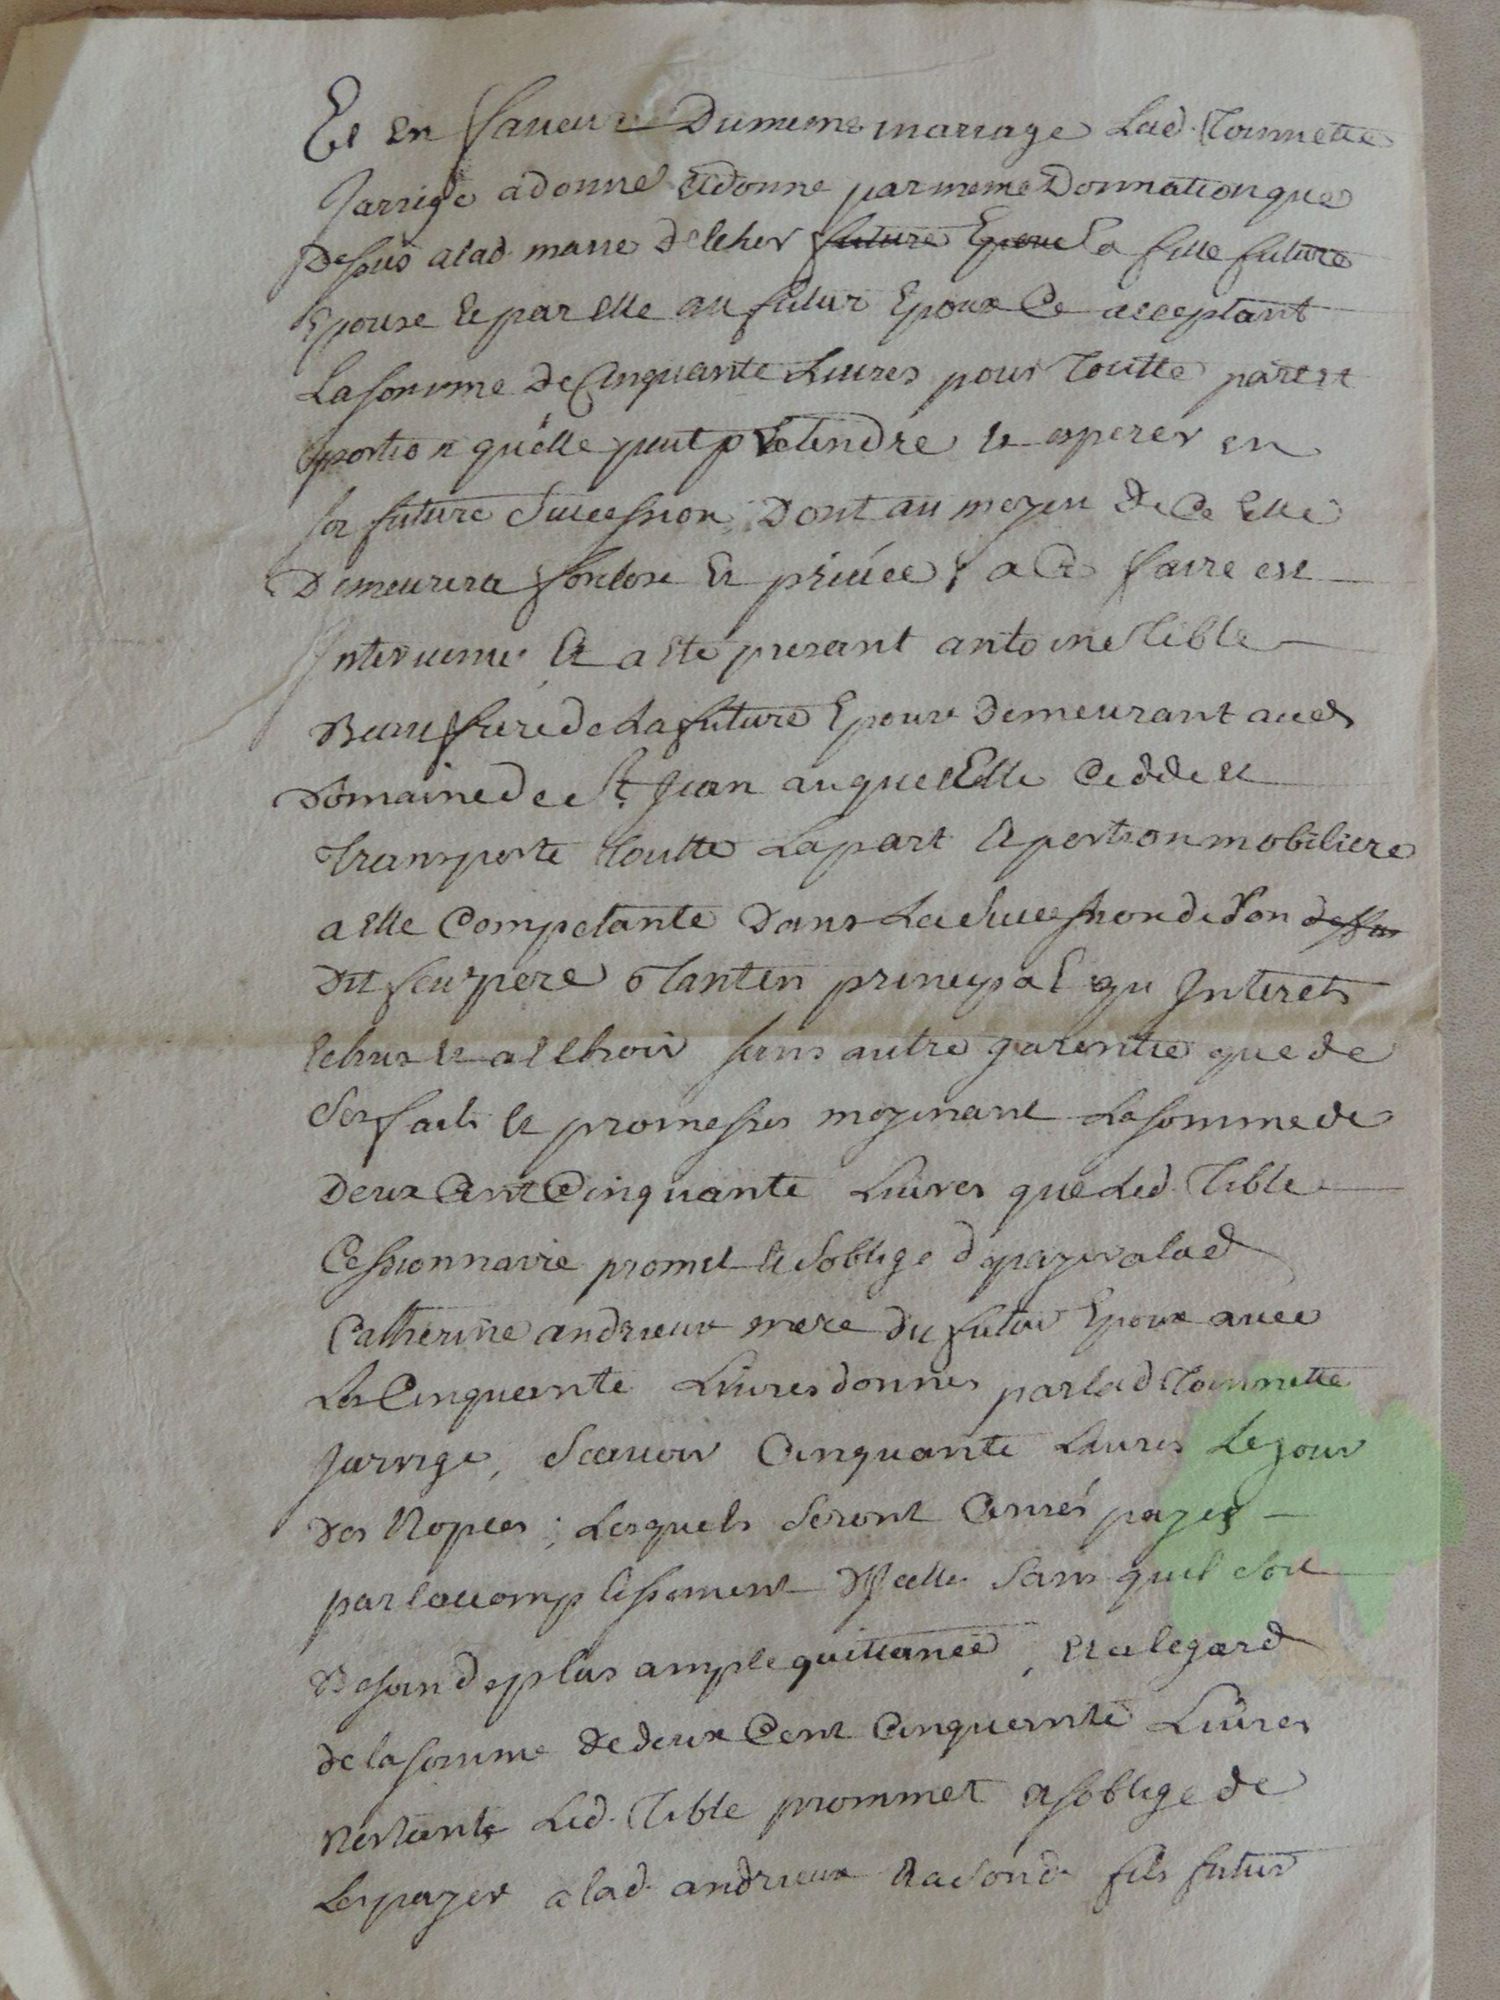 Et en faveur Dumeme mariage Lad. Toinnette
Jarrige adonné etdonne parmeme Donnationque
Dessus alad. marie Delcher future Epouse la fille future
Epouse et par elle au futur Epoux Ce acceptant
La somme De Cinquante Livres pour Toutte part et
portion qu'elle peut pretendre et esperer en
sa future Succession, Dont au moyen De Ce Elle
Demeurera forclose Et privée, a Ce faire est
Intervenu Et a eté presant antoine Tible
Beaufrere de La future Epouse Demeurant aud
Domaine De St. Jean auquel Elle Cedde et
Transporte Toutte La part et portion mobiliere
a elle Competante Dans La Succession de Son
Dit feu pere Tant en principal qu Interets
Echus et a Echoir sans autre garentie que de
Ses faits et promesses moyenant La somme de
Deux Cent Cinquante Livres que Led. Tible
Cessionnaire promet et soblige depayer alad
Catherine andrieux mere Du futur Epoux avec
Les Cinquante Livres donnes par lad Toinnette
Jarrige, Scavoir Cinquante Livres Le jour
Des Nopces; Lesquels Seront Censés payes
par laccomplissement D'Jcelle Sans quil soit
Besoin de plus ample quittance, Et a legard
de la somme de deux Cent Cinquante Livres
Restante Led. Tible prommet et soblige de
Les payer a lad. andrieux Et a sond fils futur